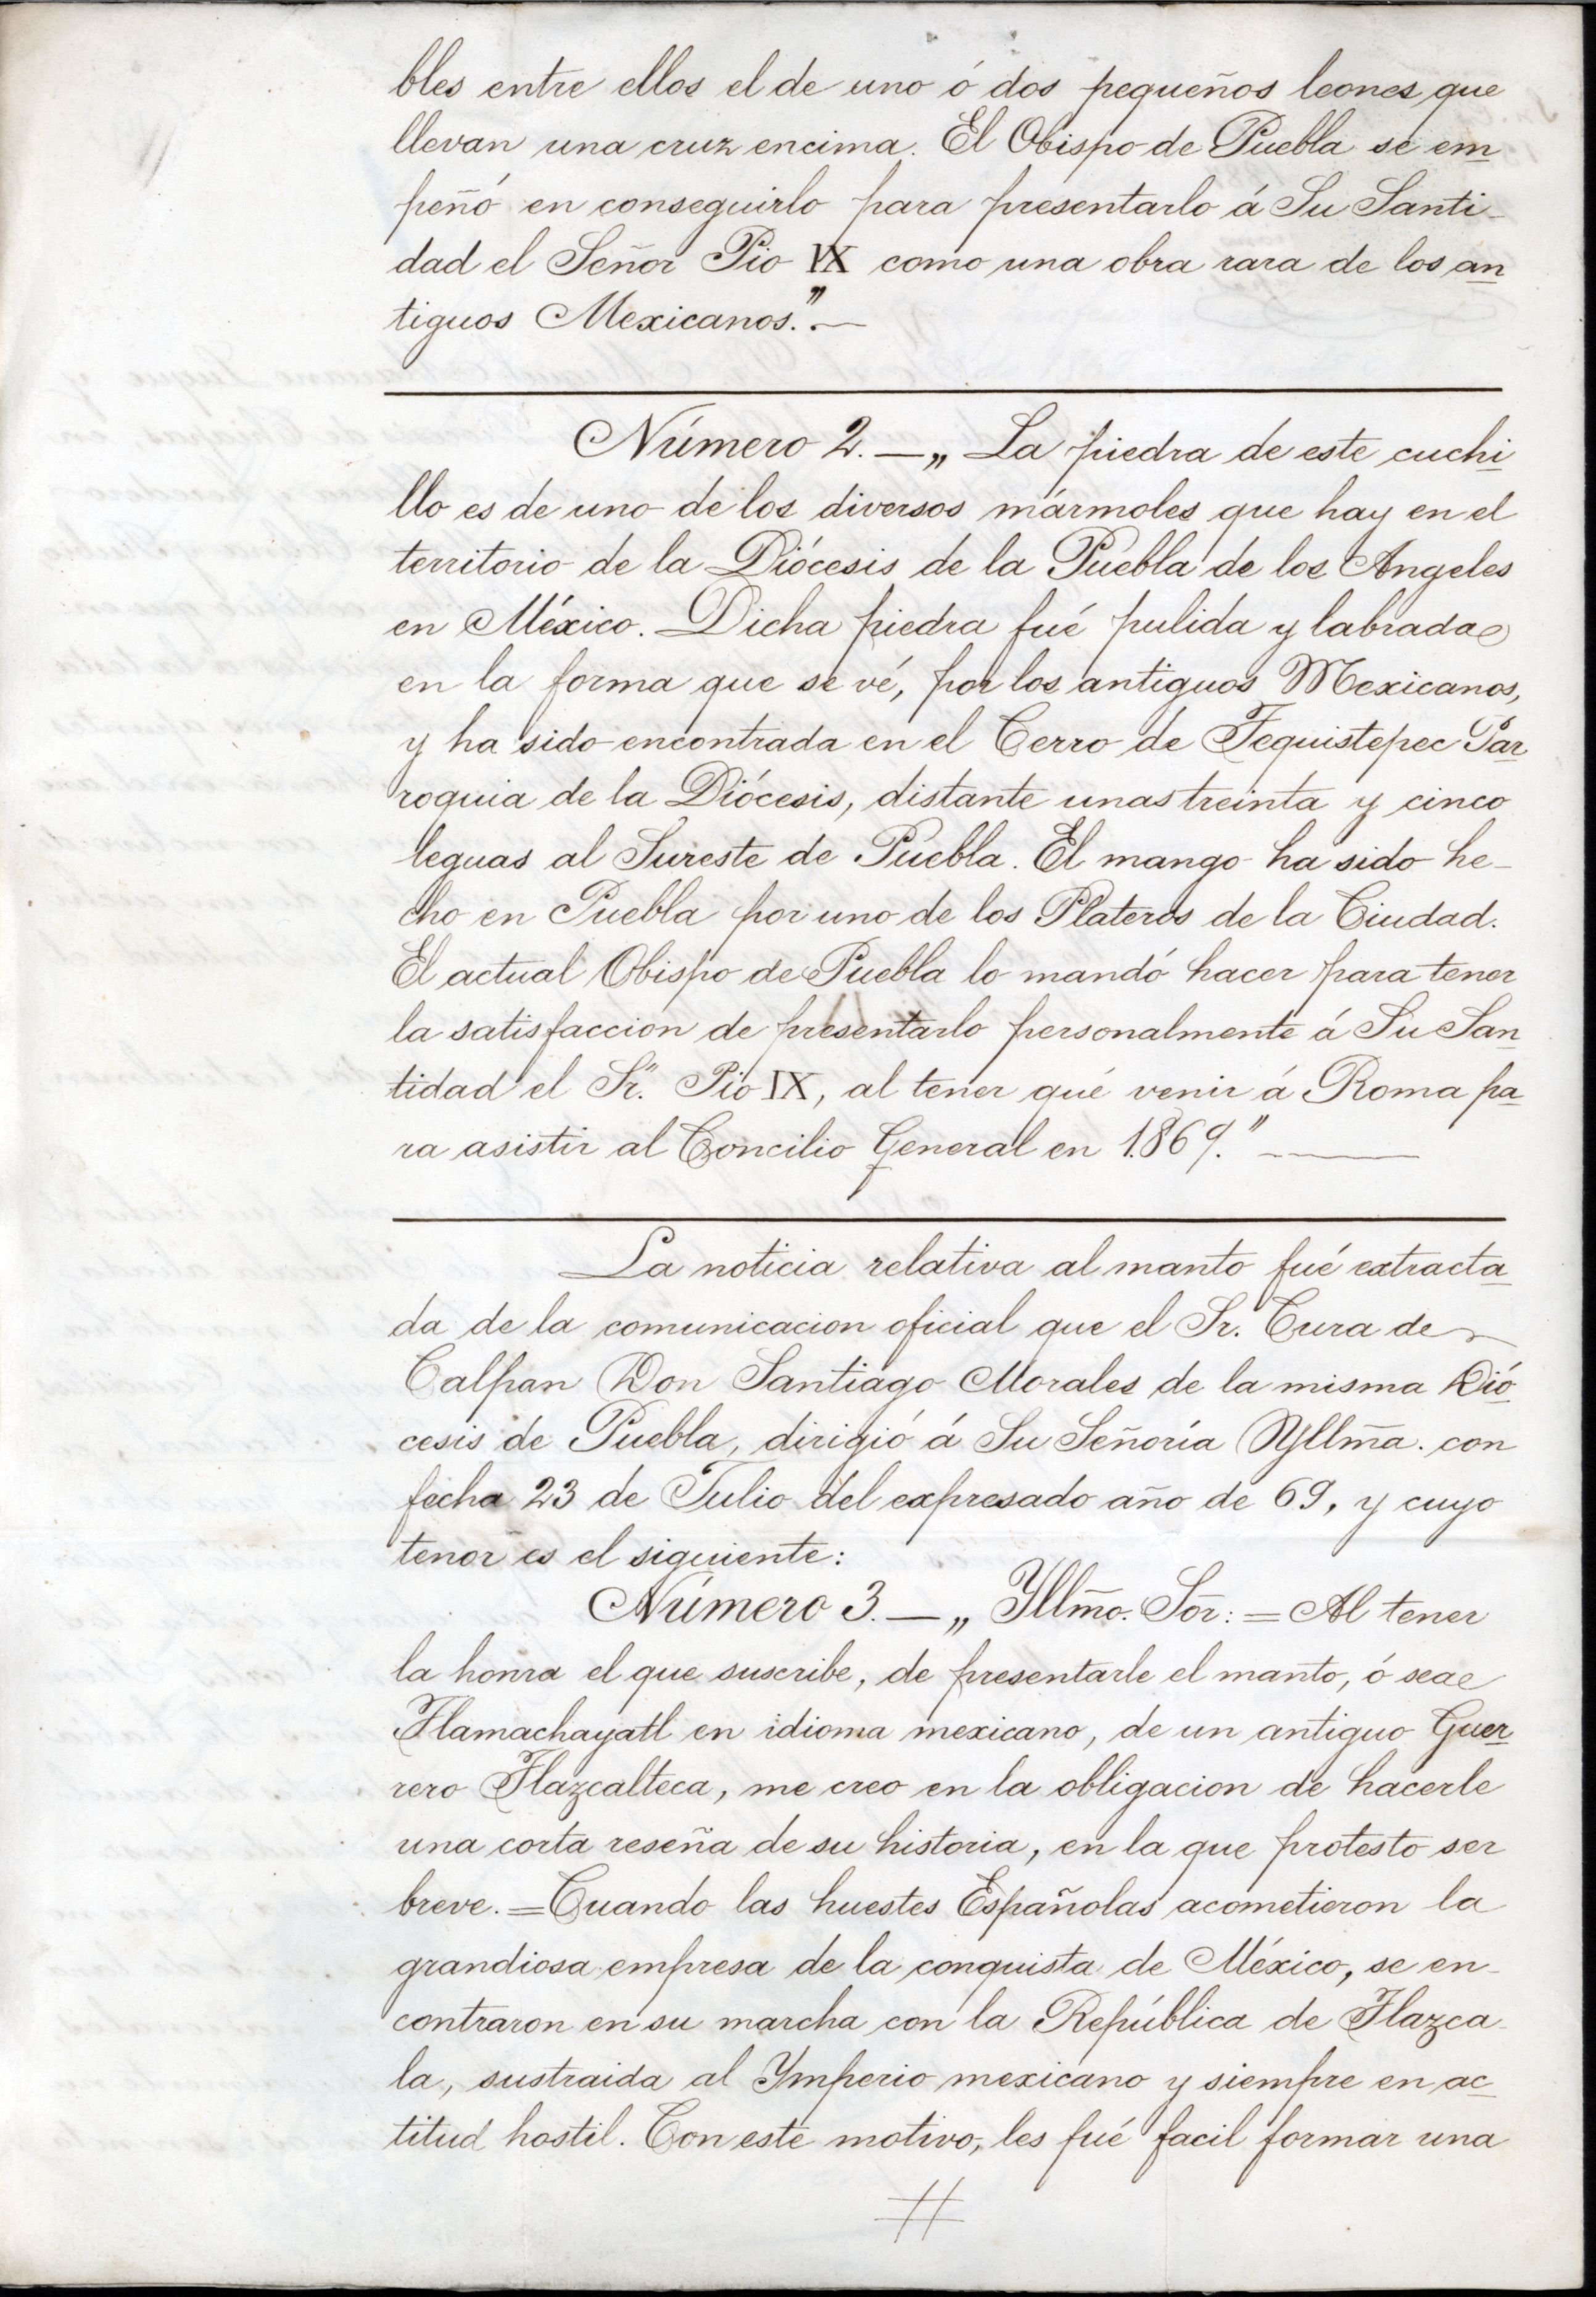 bles entre ellos el de uno ó dos pequeños leones que
llevan una cruz encima. El Obispo de Puebla se em
peñó en conseguirlo para presentarlo á Su Santi-
dad el Señor Pio IX como una obra rara de los an
tiguos Mexicanos." —
Número 2. — „ La piedra de este cuchi
llo es de uno de los diversos mármoles que hay en el
territorio de la Diócesis de la Puebla de los Angeles
en México. Dicha piedra fué pulida y labrada
en la forma que se vé, por los antiguos Mexicanos,
y ha sido encontrada en el Cerro de Tequistepec Par
roquia de la Diócesis, distante unas treinta y cinco
leguas al Sureste de Puebla. El mango ha sido he-
cho en Puebla por uno de los Plateros de la Ciudad.
El actual Obispo de Puebla lo mandó hacer para tener
la satisfaccion de presentarlo personalmente á Su San
tidad el Sr. Pio IX, al tener qué venir á Roma pa
ra asistir al Concilio General en 1869." —
La noticia relativa al manto fué extracta
da de la comunicacion oficial que el Sr. Cura de
Calpan Don Santiago Morales de la misma Dió
cesis de Puebla, dirigió á Su Señoría Yllm̃a. con
fecha 23 de Julio del expresado año de 69, y cuyo
tenor es el siguiente:
Número 3. — „ Yllm̃o. Sor̃: = Al tener
la honra el que suscribe, de presentarle el manto, ó sea
Tlamachayatl en idioma mexicano, de un antiguo Guer
rero Tlazcalteca, me creo en la obligacion de hacerle
una corta reseña de su historia, en la que protesto ser
breve. = Cuando las huestes Españolas acometieron la
grandiosa empresa de la conquista de México, se en-
contraron en su marcha con la República de Tlazca-
la, sustraida al Ymperio mexicano y siempre en ac
titud hostil. Con este motivo, les fué facil formar una
#